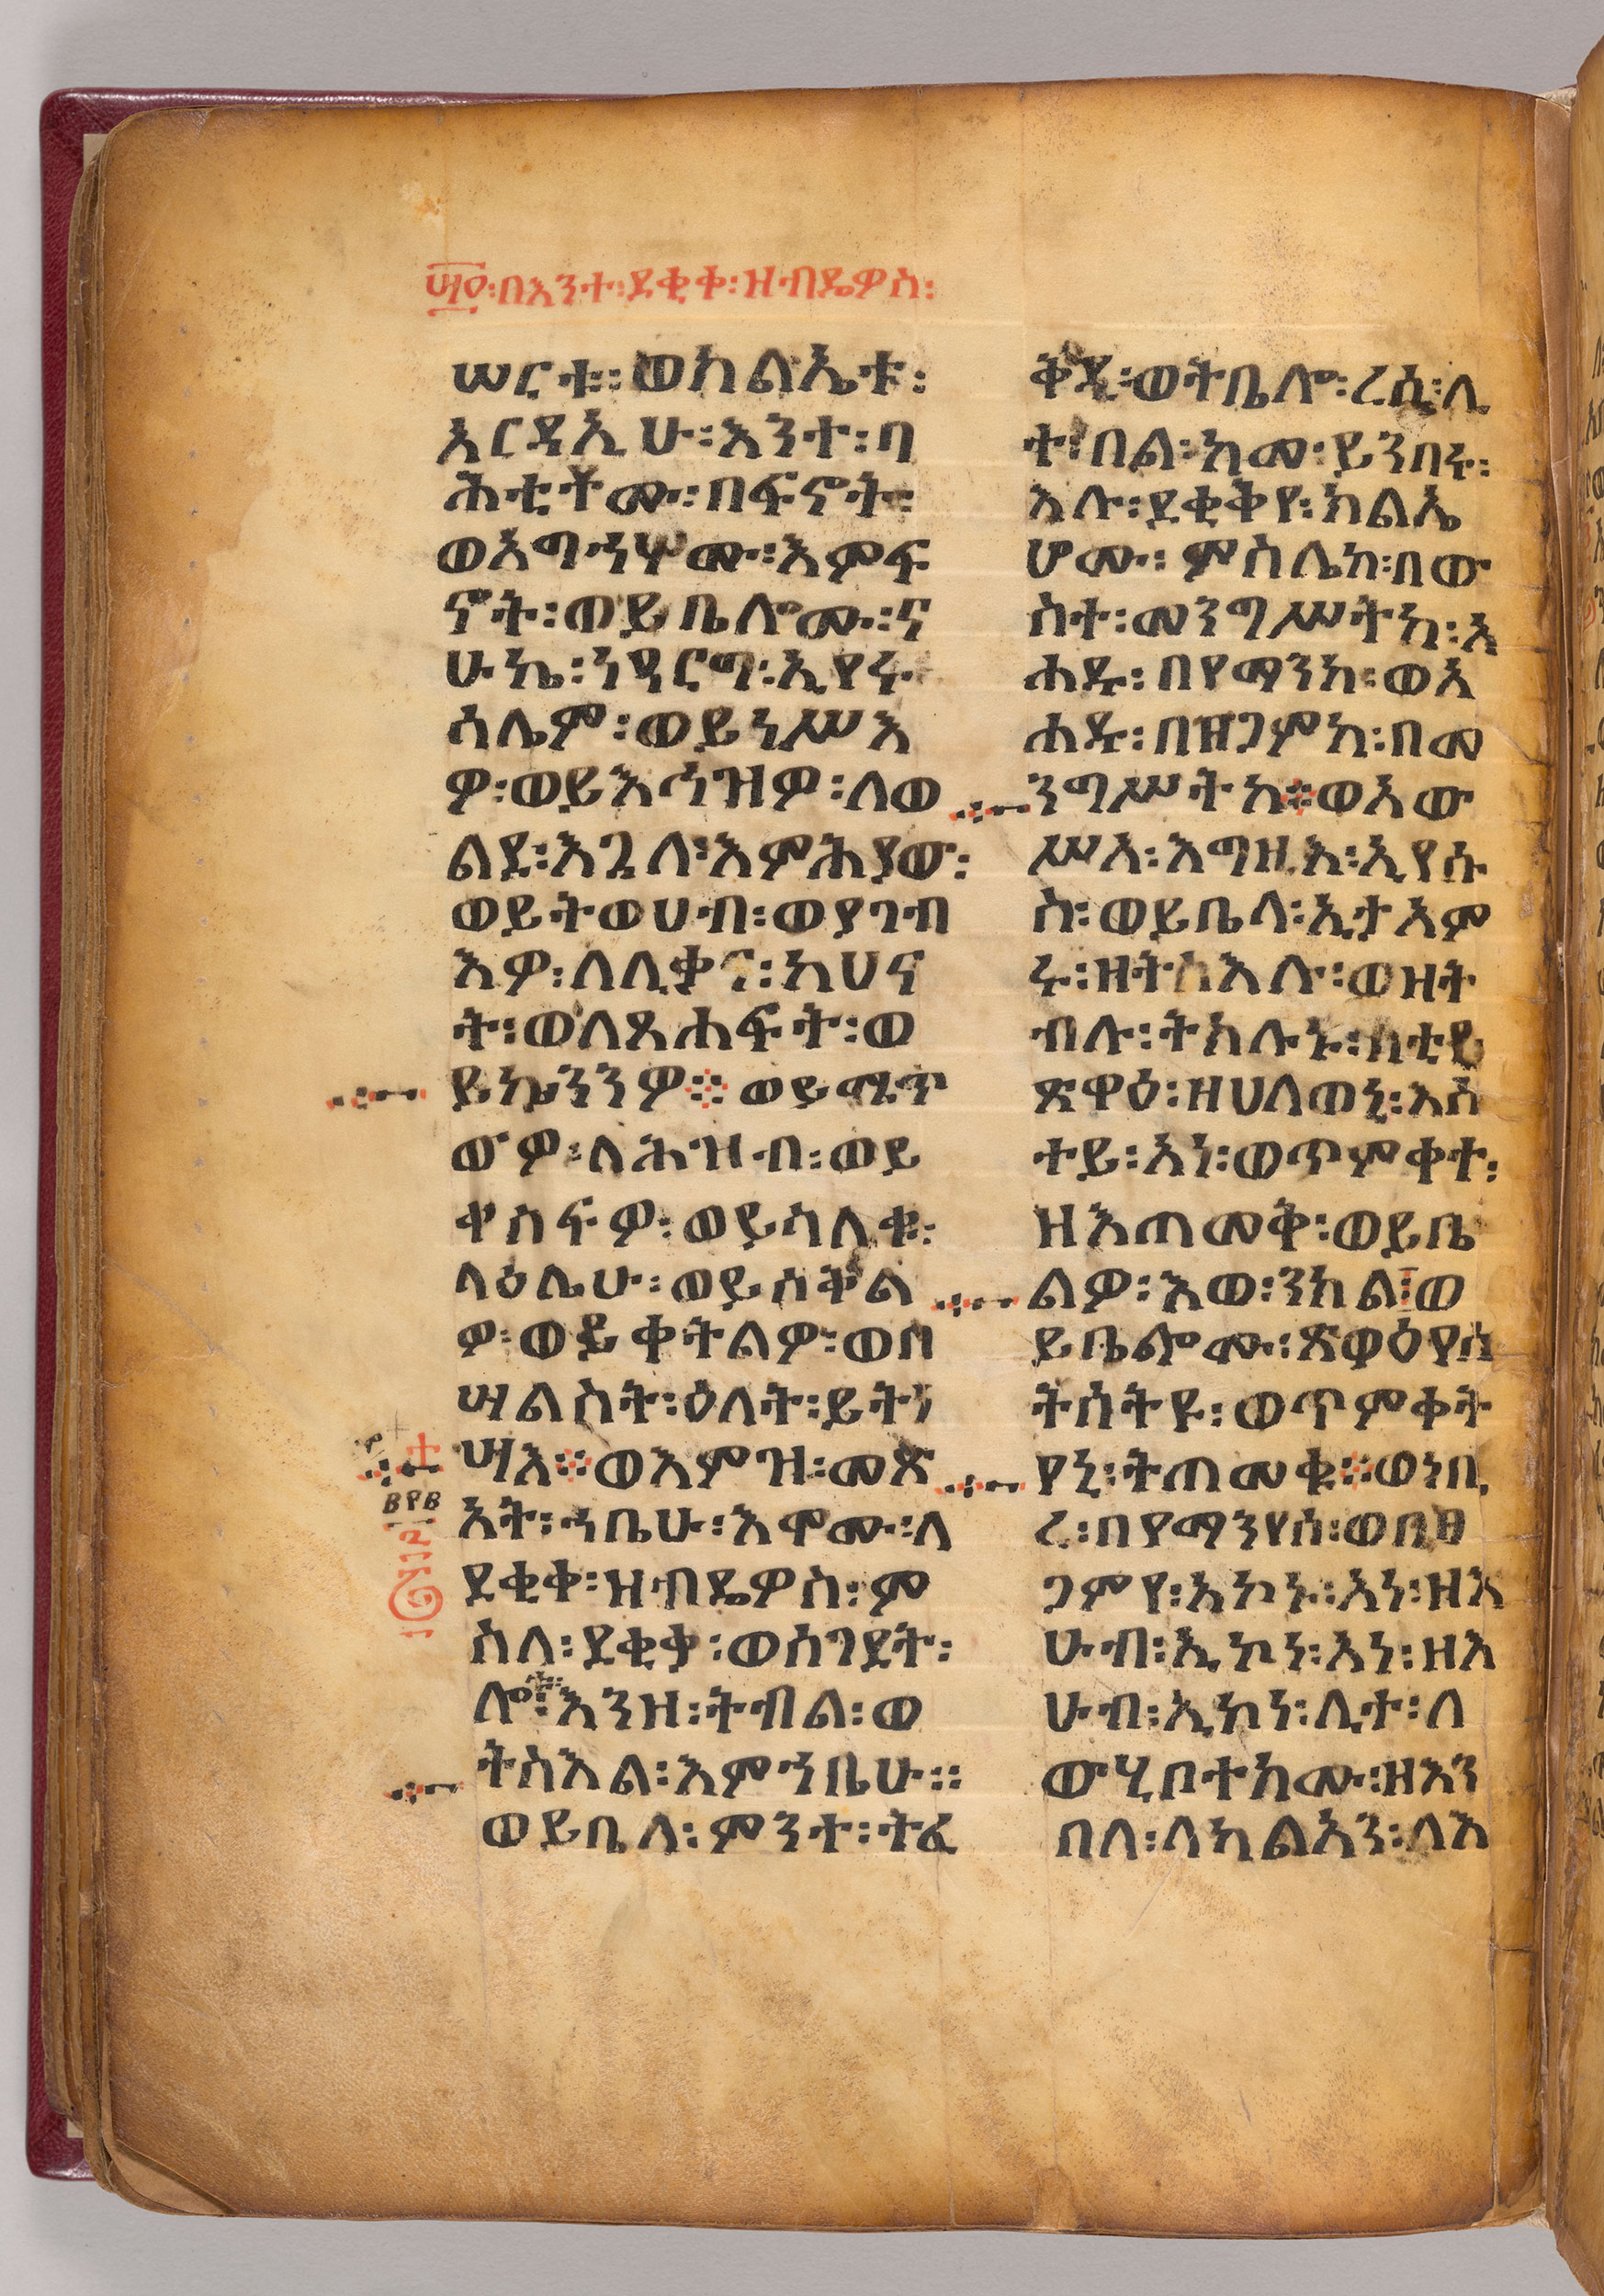 ፵፩፡በእንተ፡ደቂቀ፡ዝብዴዎስ፡
ሠርቱ፡ወክልኤቱ፡
አርዳኢሁ፡እንተ፡ባ
ሕቲቶሙ፡በፍኖት፡
ወአግኃሦሙ፡እምፍ
ኖት፡ወይቤሎሙ፡ና
ሁኬ፡ነዓርግ፡ኢየሩ
ሳሌም፡ወይነሥእ
ዎ፡ወይእኅዝዎ፡ለወ
ልደ፡እጓለ፡እምሕያው፡
ወይትወሀብ፡ወያገብ
እዎ፡ለሊቃና፡ከህና
ት፡ወለጸሐፍት፡ወ
ይኴንንዎ፨ወይሜጥ
ውዎ፡ለሕዝብ፡ወይ
ቀስፍዎ፡ወይሳለቁ፡
ላዕሌሁ፡ወይሰቅል
ዎ፡ወይቀትልዎ፡ወበ
ሣልስት፡ዕለት፡ይትነ
ሣእ፨ወእምዝ፡መጽ
አት፡ኀቤሁ፡እሞሙ፡ለ
ደቂቀ፡ዝብዴዎስ፡ም
ስለ፡ደቂቃ፡ወሰገደት፡
ሎቱ፡እንዘ፡ትብል፡ወ
ትስእል፡እምኀቤሁ፡፡
ወይቤላ፡ምንተ፡ትፈ
ቅዲ፡ወትቤሎ፡ረሲ፡ሊ
ተ፡በል፡ከመ፡ይንበሩ፡
እሉ፡ደቂቅየ፡ክልኤ
ሆሙ፡ምስሌከ፡በው
ስተ፡መንግሥትከ፡አ
ሐዱ፡በየማንከ፡ወአ
ሐዱ፡በፀጋምከ፡በመ
ንግሥትከ፨ወአው
ሥአ፡እግዚእ፡ኢየሱ
ስ፡ወይቤላ፡ኢታአም
ሩ፡ዘትስእሉ፡ወዘት
ብሉ፡ትክሉኑ፡ሰቲየ
ጽዋዕ፡ዘሀለወኒ፡እስ
ተይ፡አነ፡ወጥምቀተ፡
ዘእጠመቅ፡ወይቤ
ልዎ፡እወ፡ንክል፡ወ
ይቤሎሙ፡ጽዋዕየሰ
ትሰትዩ፡ወጥምቀት
የኒ፡ትጠመቁ፨ወነበ
ረ፡በየማንየሰ፡ወበፀ
ጋምየ፡አኮኑ፡አነ፡ዘእ
ሁብ፡ኢኮነ፡አነ፡ዘእ
ሁብ፡ኢኮነ፡ሊተ፡ለ
ውሂቦተክሙ፡ዘእን
በለ፡ለካልኣን፡ለእ